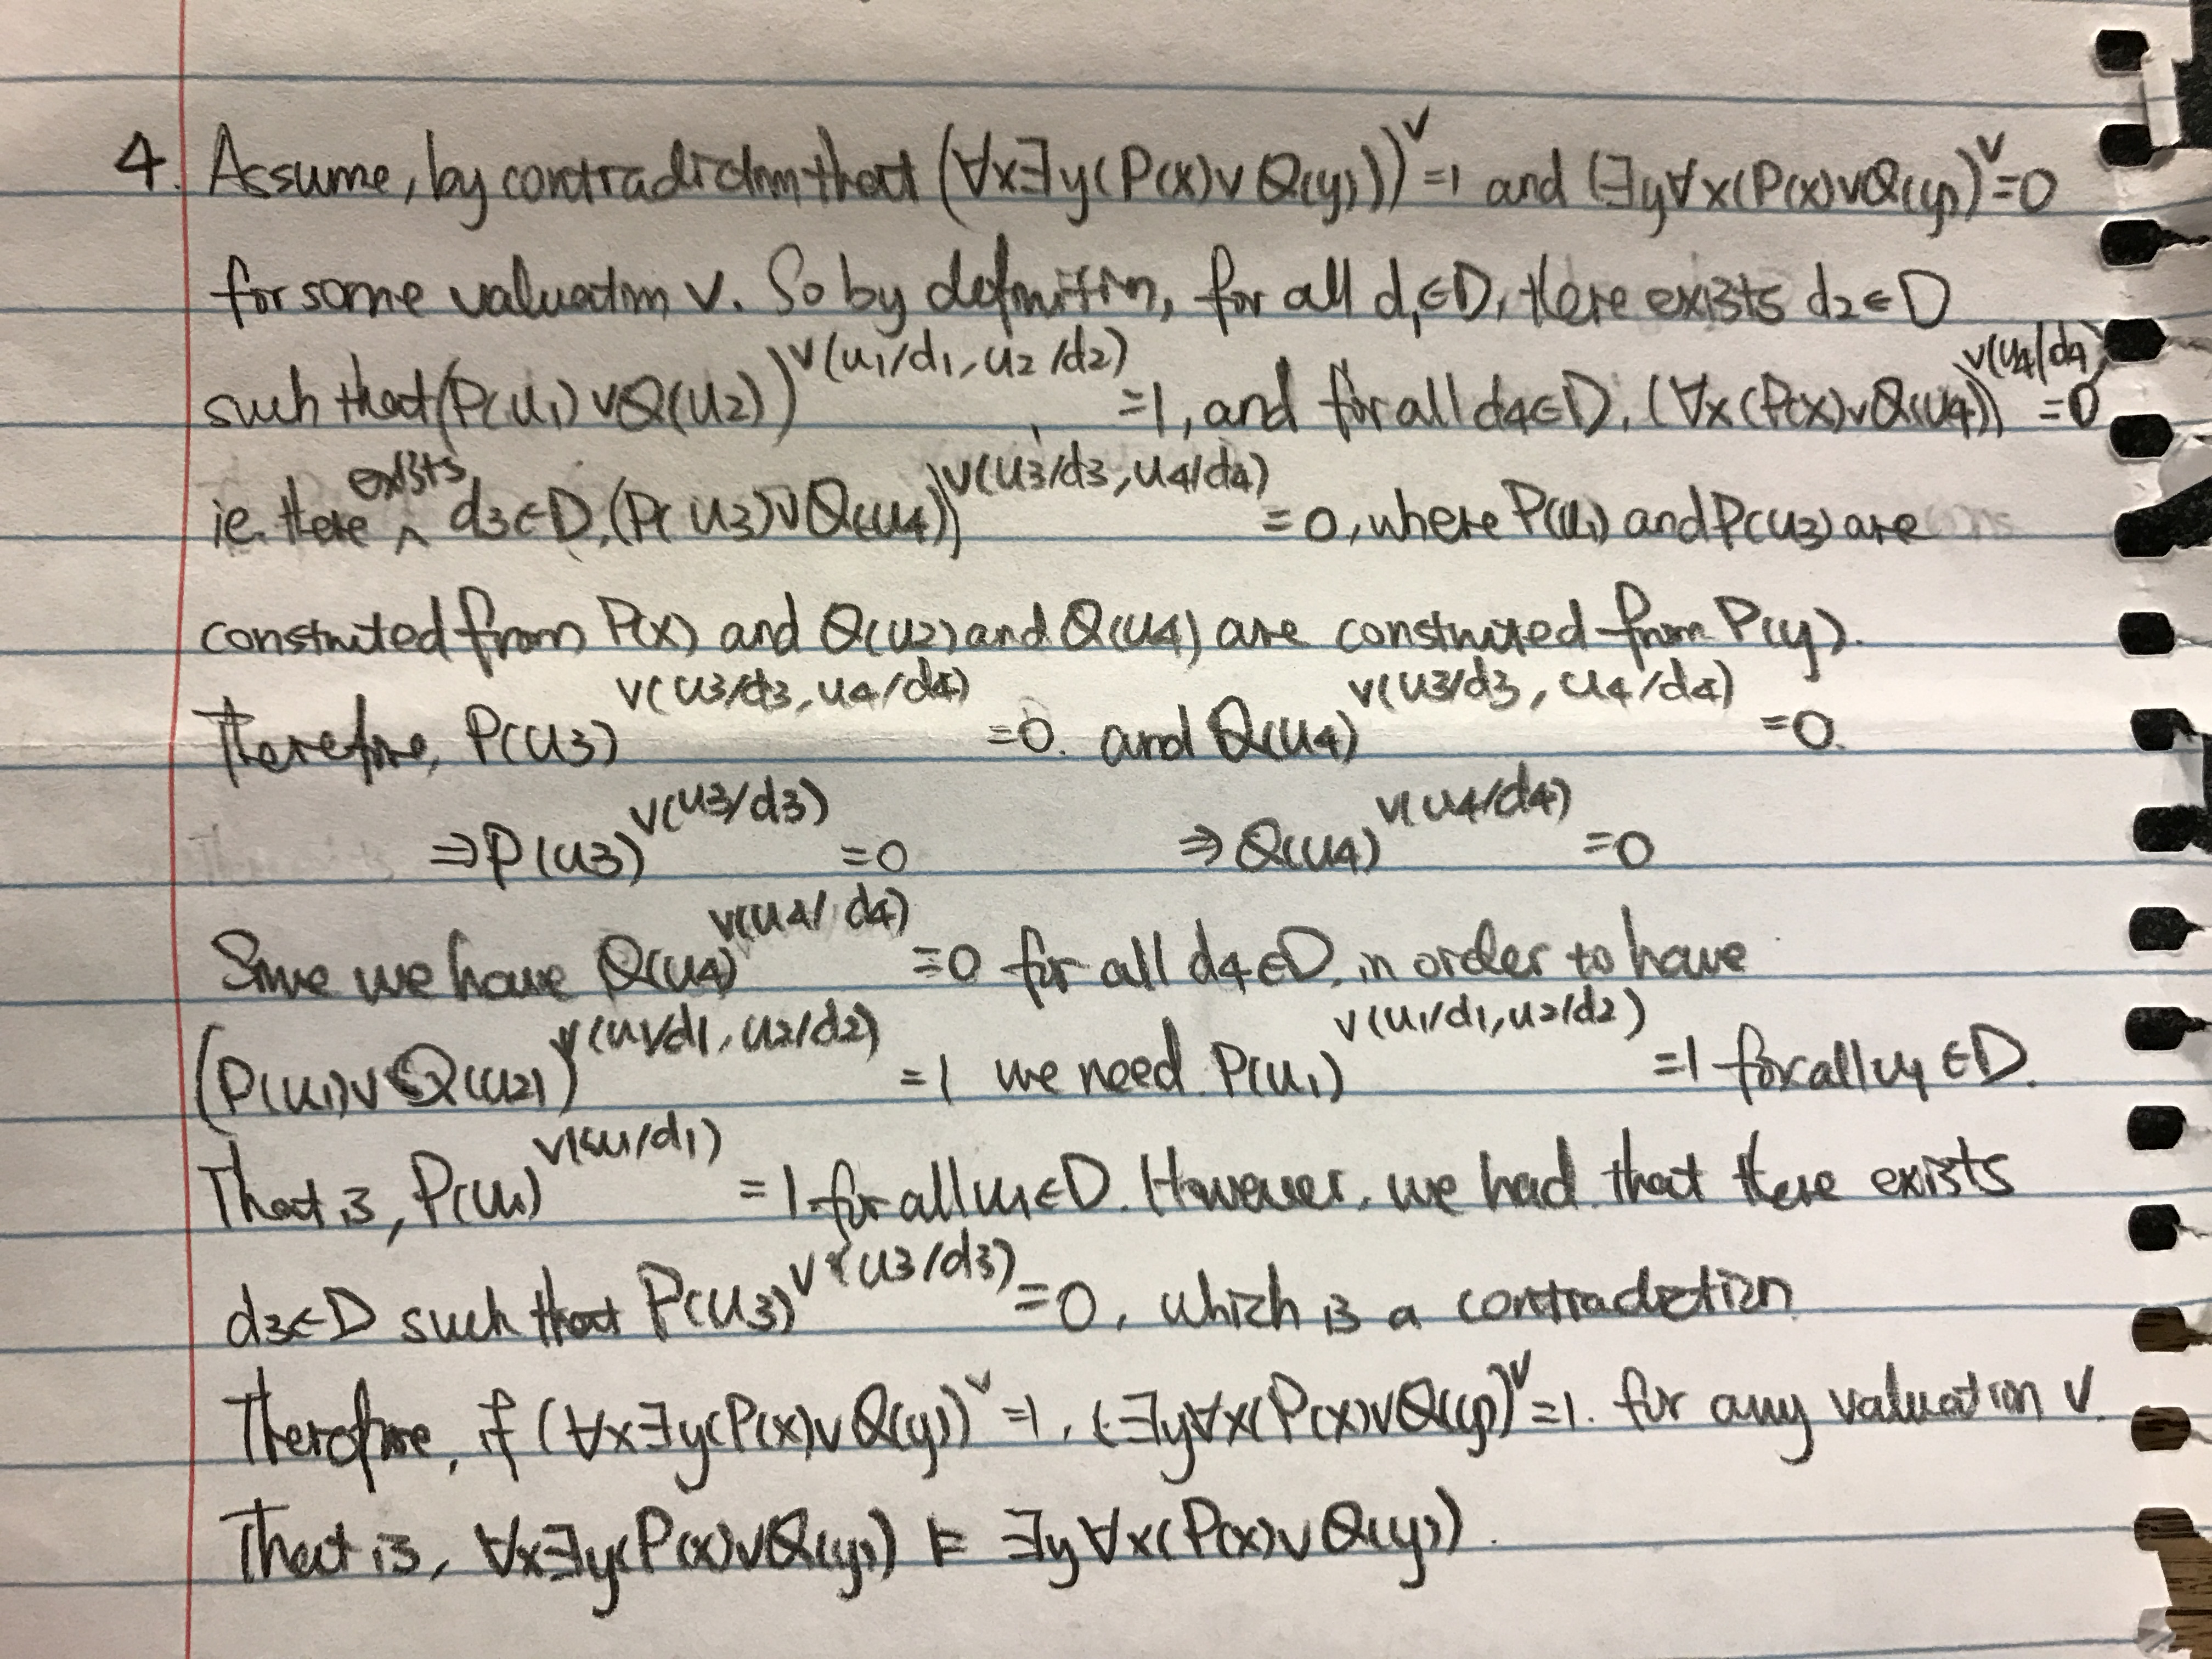 4. Assume, by contradiction that (∀x∃y(P(x)∨Q(y)))^v=1 and (∃y∀x(P(x)∨Q(y))^v=0
for some valuation v. So by definition, for all d1∈D, there exists d2∈D
such that (P(u1)∨Q(u2))^v(u1/d1, u2/d2) =1, and for all d4∈D, (∀x(P(x)∨Q(u4))^v(u4/d4) =0
ie. there exists d3∈D, (P(u3)∨Q(u4))^v(u3/d3, u4/d4) =0, where P(u1) and P(u3) are
constructed from P(x) and Q(u2) and Q(u4) are constructed from P(y).
Therefore, P(u3)^v(u3/d3, u4/d4) =0. and Q(u4)^v(u3/d3, u4/d4) =0.
⇒P(u3)^v(u3/d3) =0 ⇒ Q(u4)^v(u4/d4) =0
Since we have Q(u4)^v(u4/d4) =0 for all d4∈D, in order to have
(P(u1)∨Q(u2))^v(u1/d1, u2/d2) =1 we need P(u1)^v(u1/d1, u2/d2) =1 for all u1∈D.
That is, P(u1)^v(u1/d1) =1 for all u1∈D. However, we had that there exists
d3∈D such that P(u3)^v(u3/d3) =0, which is a contradiction
Therefore, if (∀x∃y(P(x)∨Q(y))^v=1, (∃y∀x(P(x)∨Q(y))^v=1. for any valuation v.
That is, ∀x∃y(P(x)∨Q(y)) ⊨ ∃y∀x(P(x)∨Q(y)).